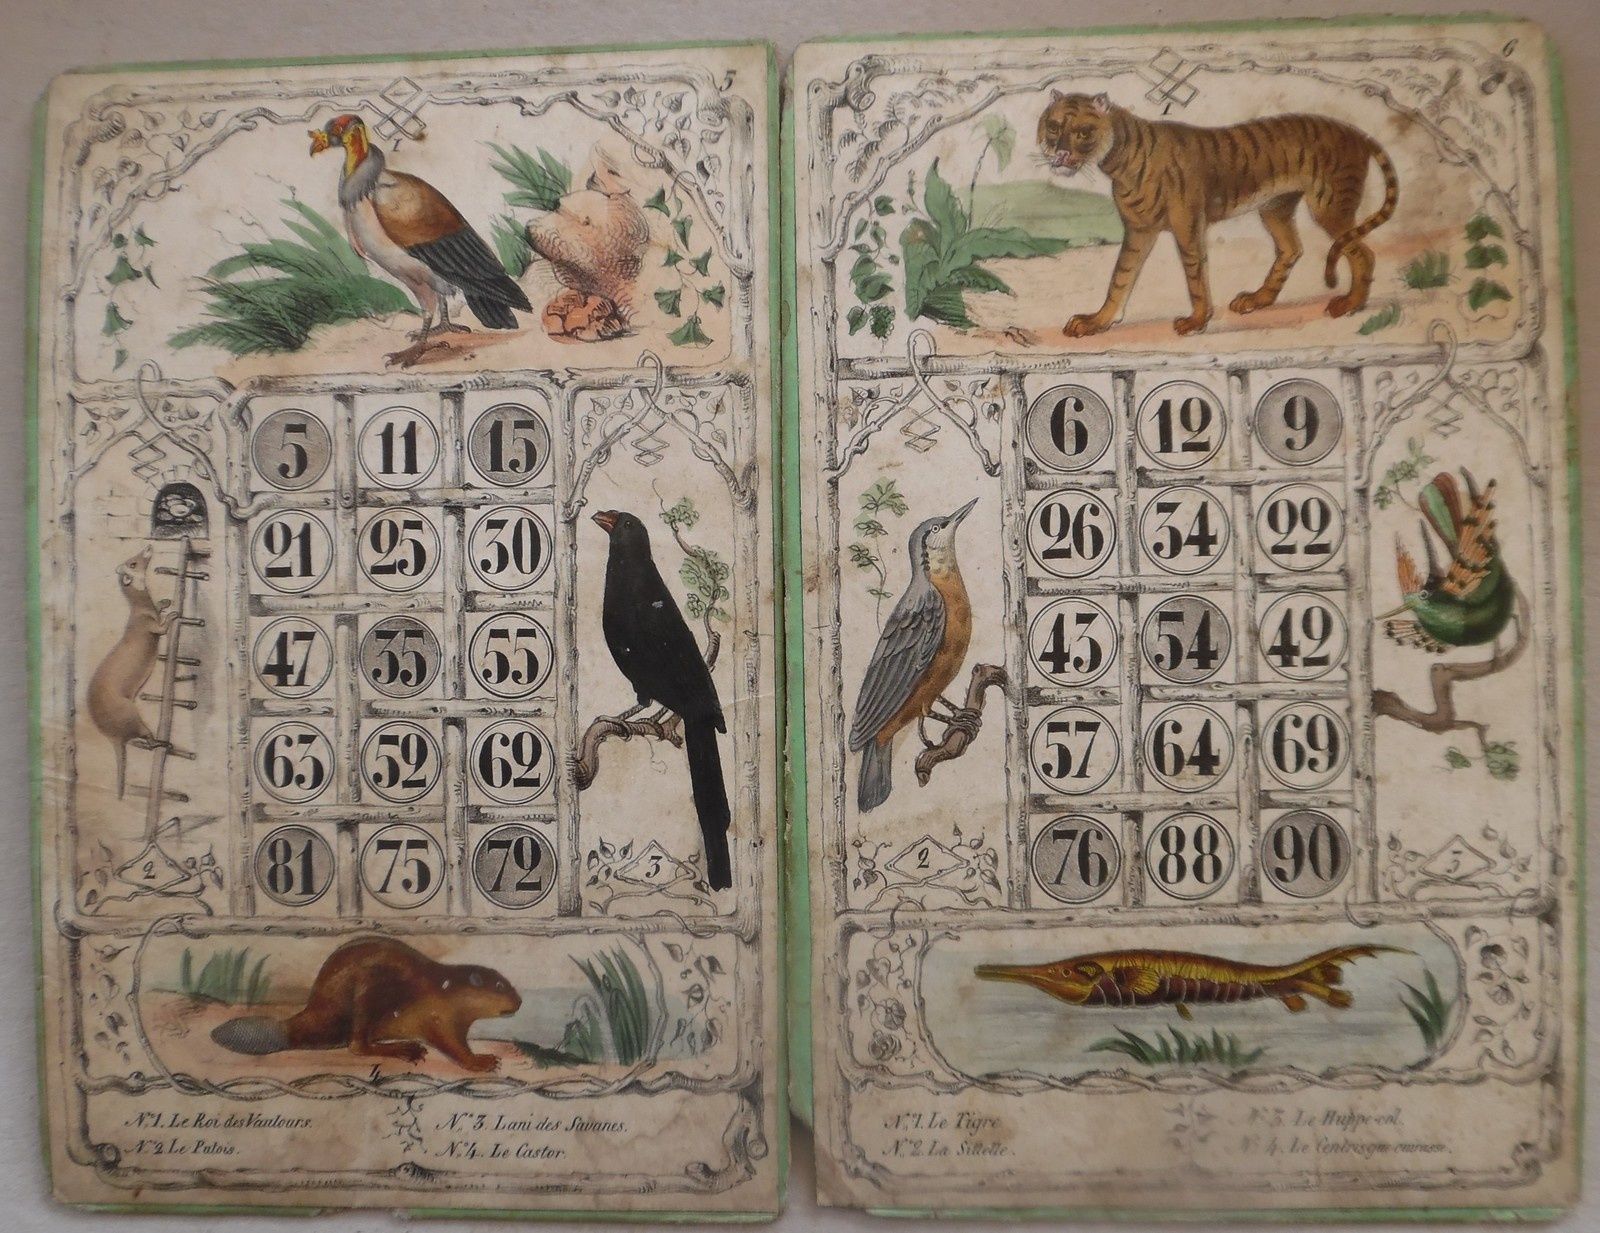 5
1
5 11 15
21 25 30
47 35 55
63 52 62
81 75 72
2
3
4
N.º 1. Le Roi des Vautours.
N.º 2. Le Putois.
N.º 3. Lani des Savanes.
N.º 4. Le Castor.
6
1
6 12 9
26 34 22
43 54 42
57 64 69
76 88 90
2
3
N.º 1. Le Tigre
N.º 2. La Sittelle.
N.º 3. Le Huppe-col.
N.º 4. Le Centrisque cuirasse.